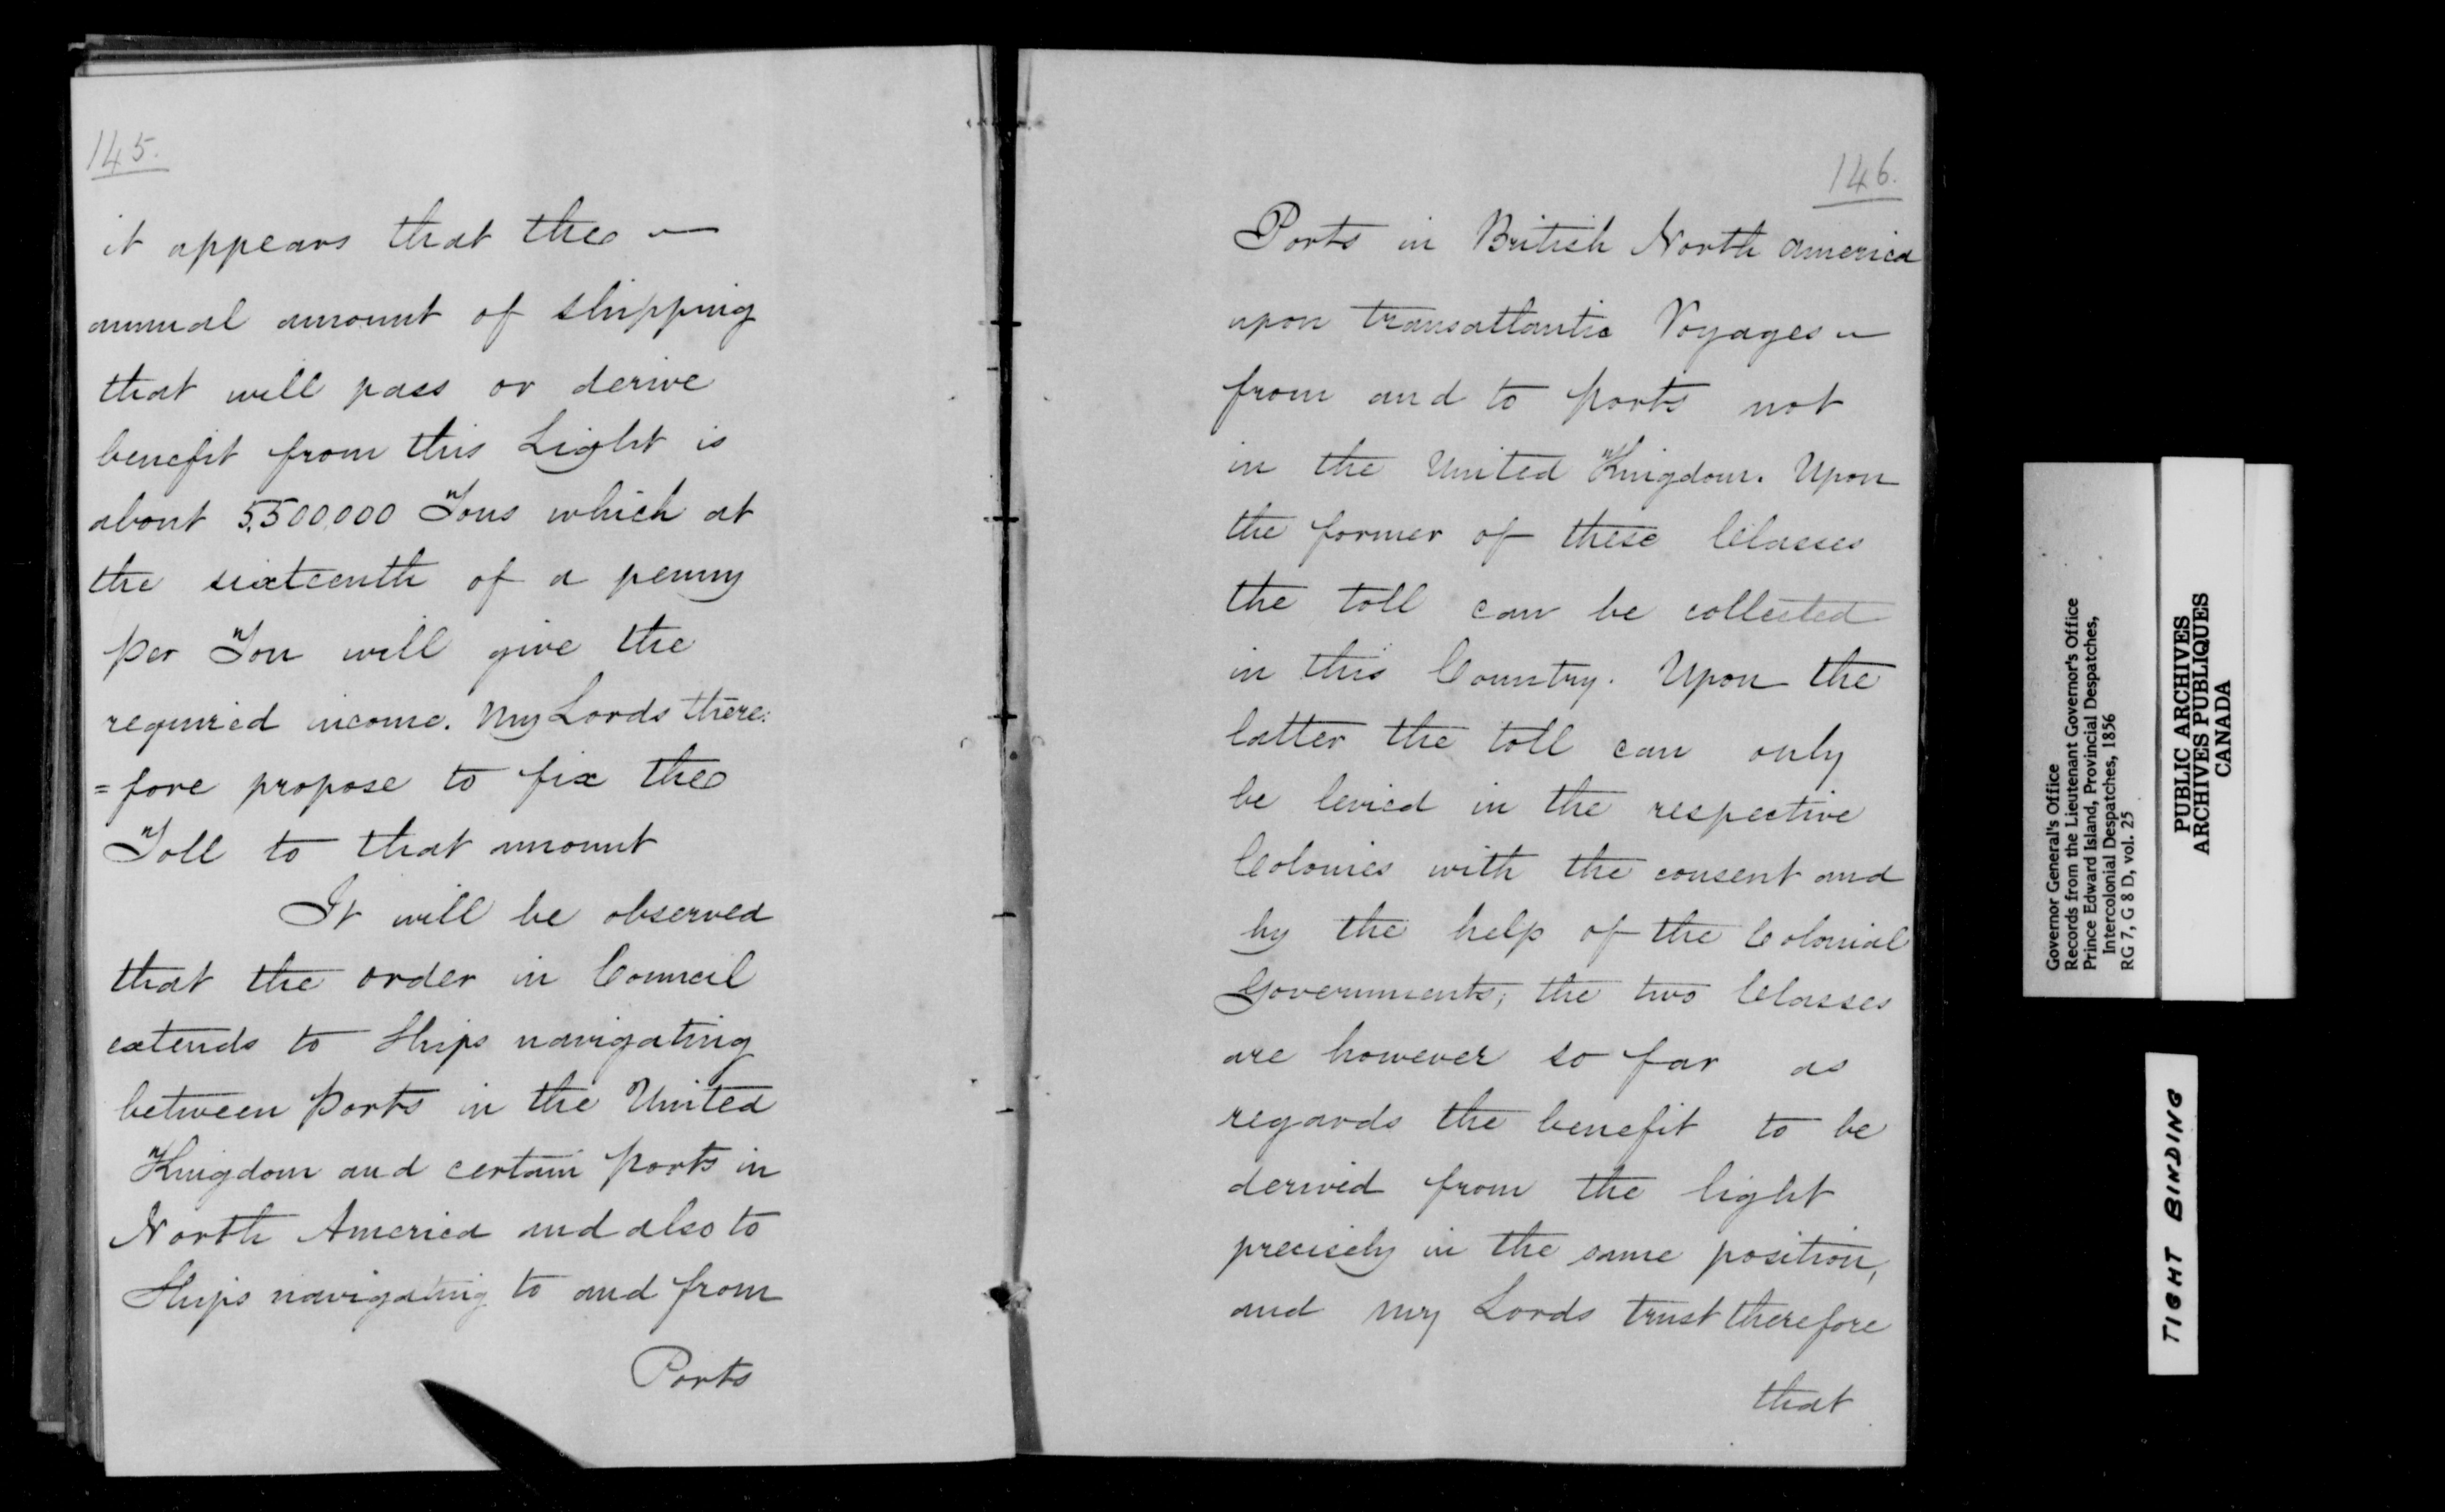 145.
it appears that the —
annual amount of shipping
that will pass or derive
benefit from this Light is
about 5,500,000 Tons which at
the sixteenth of a penny
per Ton will give the
required income. My Lords there:
=fore propose to fix the
Toll to that amount
It will be observed
that the order in Council
extends to Ships navigating
between Ports in the United
Kingdom and certain Ports in
North America and also to
Ships navigating to and from
Ports
146.
Ports in British North America
upon transatlantic Voyages —
from and to Ports not
in the United Kingdom. Upon
the former of these Classes
the toll can be collected
in this Country. Upon the
latter the toll can only
be levied in the respective
Colonies with the consent and
by the help of the Colonial
Governments; the two Classes
are however so far as
regards the benefit to be
derived from the light
precisely in the same position,
and my Lords trust therefore
that
Governor General's Office
Records from the Lieutenant Governor's Office
Prince Edward Island, Provincial Despatches,
Intercolonial Despatches, 1856
RG 7, G 8 D, vol. 25
PUBLIC ARCHIVES
ARCHIVES PUBLIQUES
CANADA
TIGHT BINDING